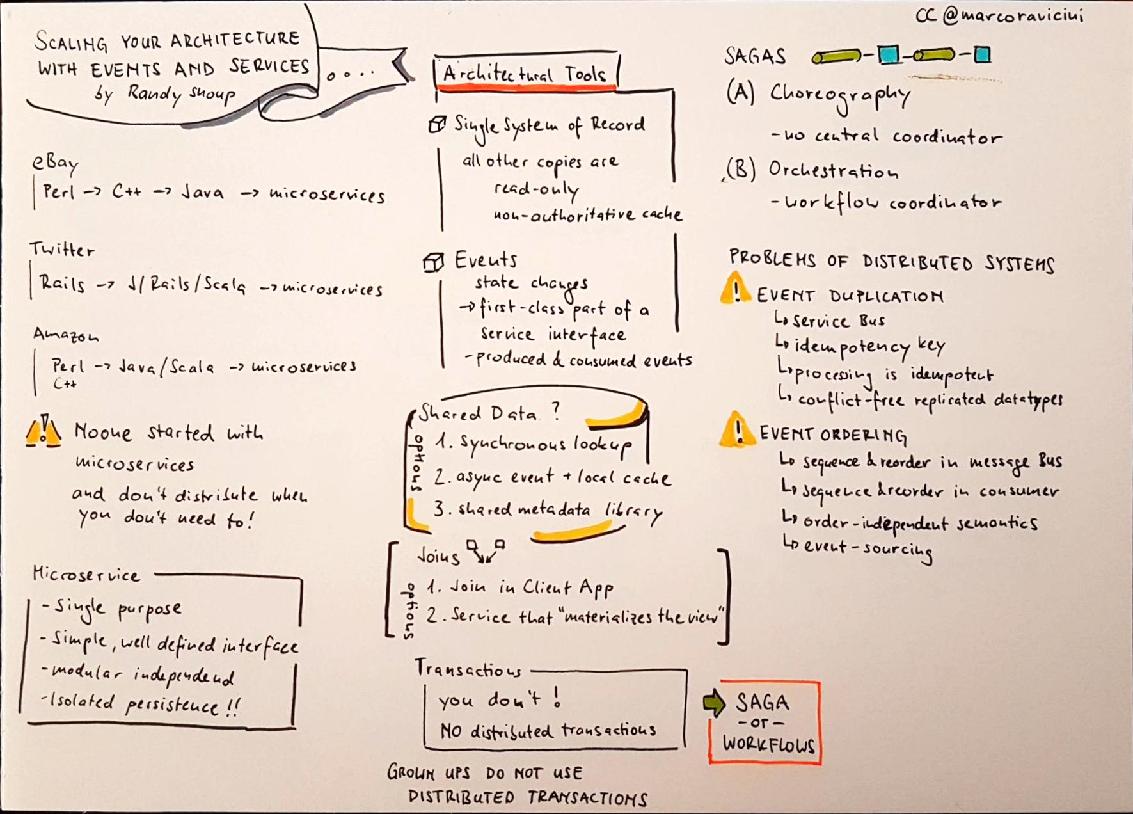 CC @marcoravicini
SCALING YOUR ARCHITECTURE
WITH EVENTS AND SERVICES
by Randy Shoup
eBay
Perl → C++ → Java → microservices
Twitter
Rails → J/Rails/Scala → microservices
Amazon
Perl → Java/Scala → microservices
C++
Noone started with
microservices
and don't distribute when
you don't need to!
Microservice
- Single purpose
- Simple, well defined interface
- modular independend
- Isolated persistence !!
Architectural Tools
Single System of Record
all other copies are
read-only
non-authoritative cache
Events
state changes
→ first-class part of a
service interface
- produced & consumed events
Shared Data ?
options
1. Synchronous lookup
2. async event + local cache
3. shared metadata library
Joins
options
1. Join in Client App
2. Service that "materializes the view"
Transactions
you don't !
NO distributed transactions
SAGA
- or -
WORKFLOWS
GROWN UPS DO NOT USE
DISTRIBUTED TRANSACTIONS
SAGAS
(A) Choreography
- no central coordinator
(B) Orchestration
- workflow coordinator
PROBLEMS OF DISTRIBUTED SYSTEMS
! EVENT DUPLICATION
↳ Service Bus
↳ idempotency key
↳ processing is idempotent
↳ conflict-free replicated datatypes
! EVENT ORDERING
↳ sequence & reorder in message Bus
↳ sequence & reorder in consumer
↳ order-independent semantics
↳ event-sourcing